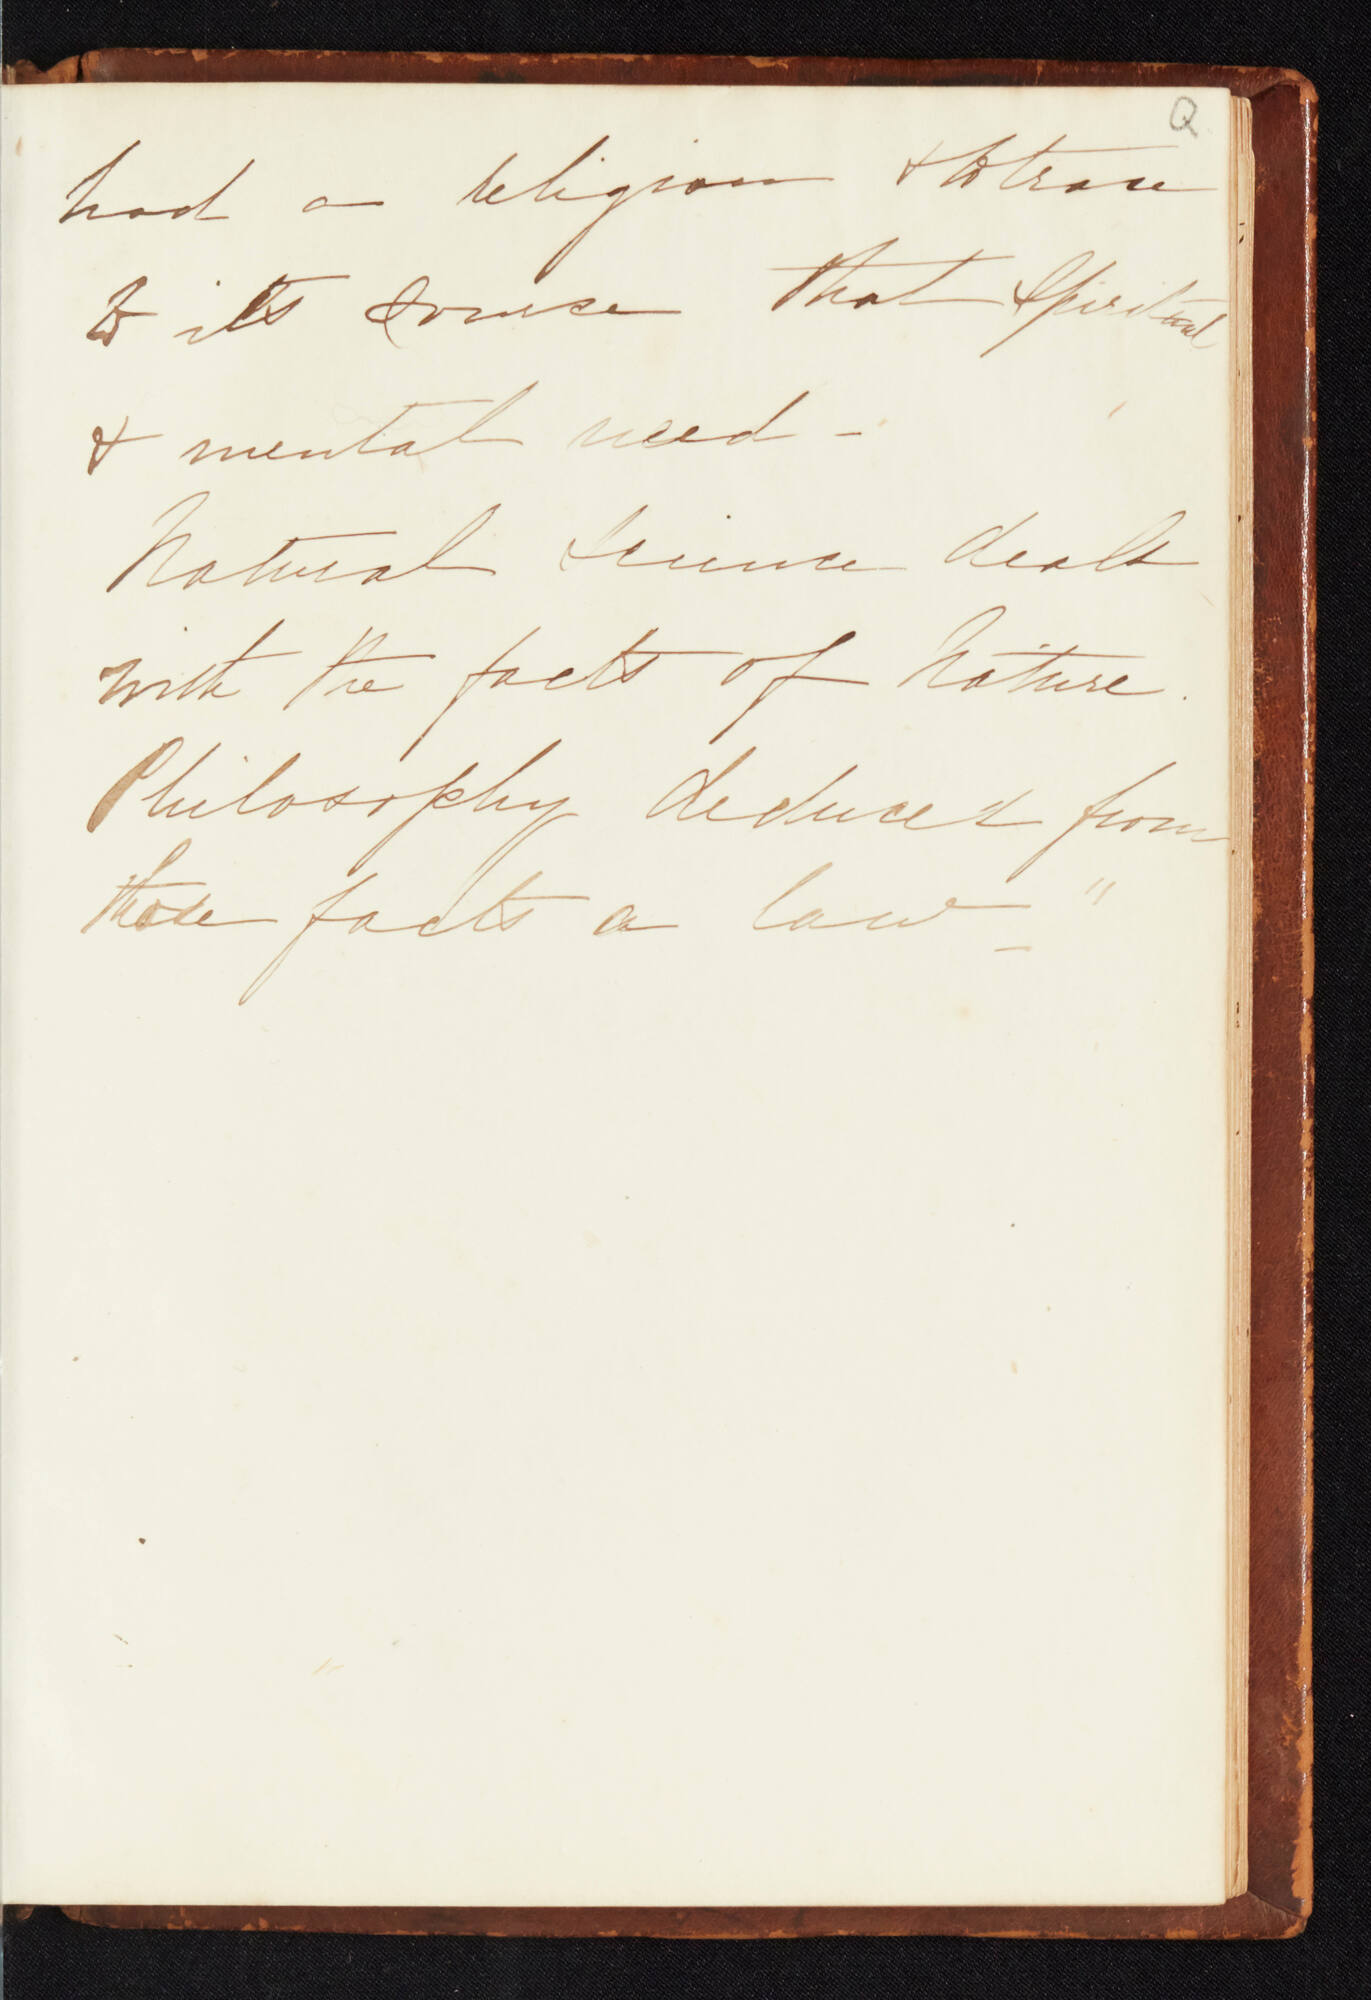 Q
had a religion & to trace
to its source that spiritual
& mental need -
Natural science deals
with the facts of Nature.
Philosophy deduces from
those facts a law - "